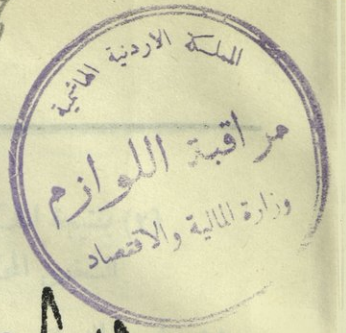 المملكة الاردنية الهاشمية
مراقبة اللوازم
وزارة المالية والاقتصاد